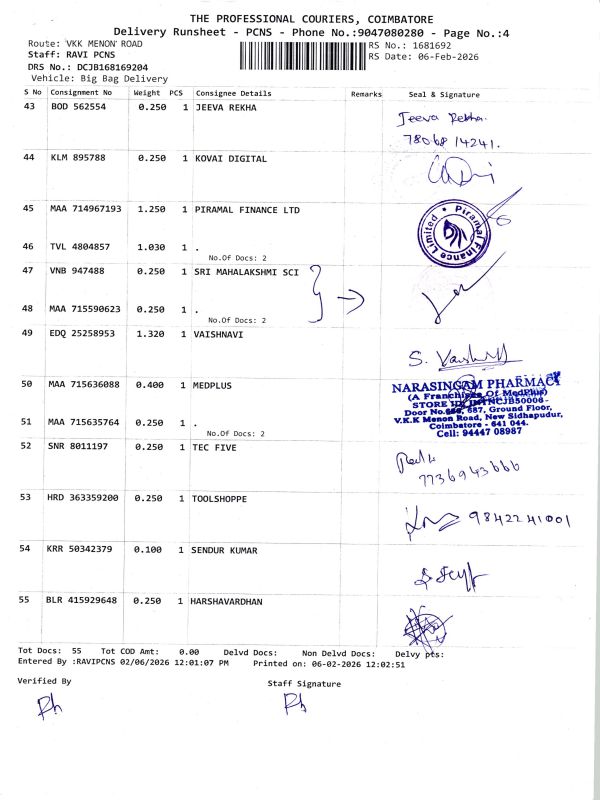 THE PROFESSIONAL COURIERS, COIMBATORE
Delivery Runsheet - PCNS - Phone No.:9047080280 - Page No.:4
Route: VKK MENON ROAD
RS No.: 1681692
Staff: RAVI PCNS
RS Date: 06-Feb-2026
DRS No.: DCJB168169204
Vehicle: Big Bag Delivery
S No Consignment No Weight PCS Consignee Details Remarks Seal & Signature
43 BOD 562554 0.250 1 JEEVA REKHA
Jeeva Rekha
78068 14241.
44 KLM 895788 0.250 1 KOVAI DIGITAL
45 MAA 714967193 1.250 1 PIRAMAL FINANCE LTD
Piramal Finance Limited
46 TVL 4804857 1.030 1 .
No.Of Docs: 2
47 VNB 947488 0.250 1 SRI MAHALAKSHMI SCI
48 MAA 715590623 0.250 1 .
No.Of Docs: 2
49 EDQ 25258953 1.320 1 VAISHNAVI
S.
50 MAA 715636088 0.400 1 MEDPLUS
NARASINGAM PHARMACY
(A Franchisee Of MedPlus)
STORE ID
Door No. 687, Ground Floor,
V.K.K Menon Road, New Sidhapudur,
Coimbatore - 641 044.
Cell: 94447 08987
51 MAA 715635764 0.250 1 .
No.Of Docs: 2
52 SNR 8011197 0.250 1 TEC FIVE
7736943666
53 HRD 363359200 0.250 1 TOOLSHOPPE
9842241001
54 KRR 50342379 0.100 1 SENDUR KUMAR
55 BLR 415929648 0.250 1 HARSHAVARDHAN
Tot Docs: 55 Tot COD Amt: 0.00 Delvd Docs: Non Delvd Docs: Delvy pts:
Entered By :RAVIPCNS 02/06/2026 12:01:07 PM Printed on: 06-02-2026 12:02:51
Verified By
Staff Signature